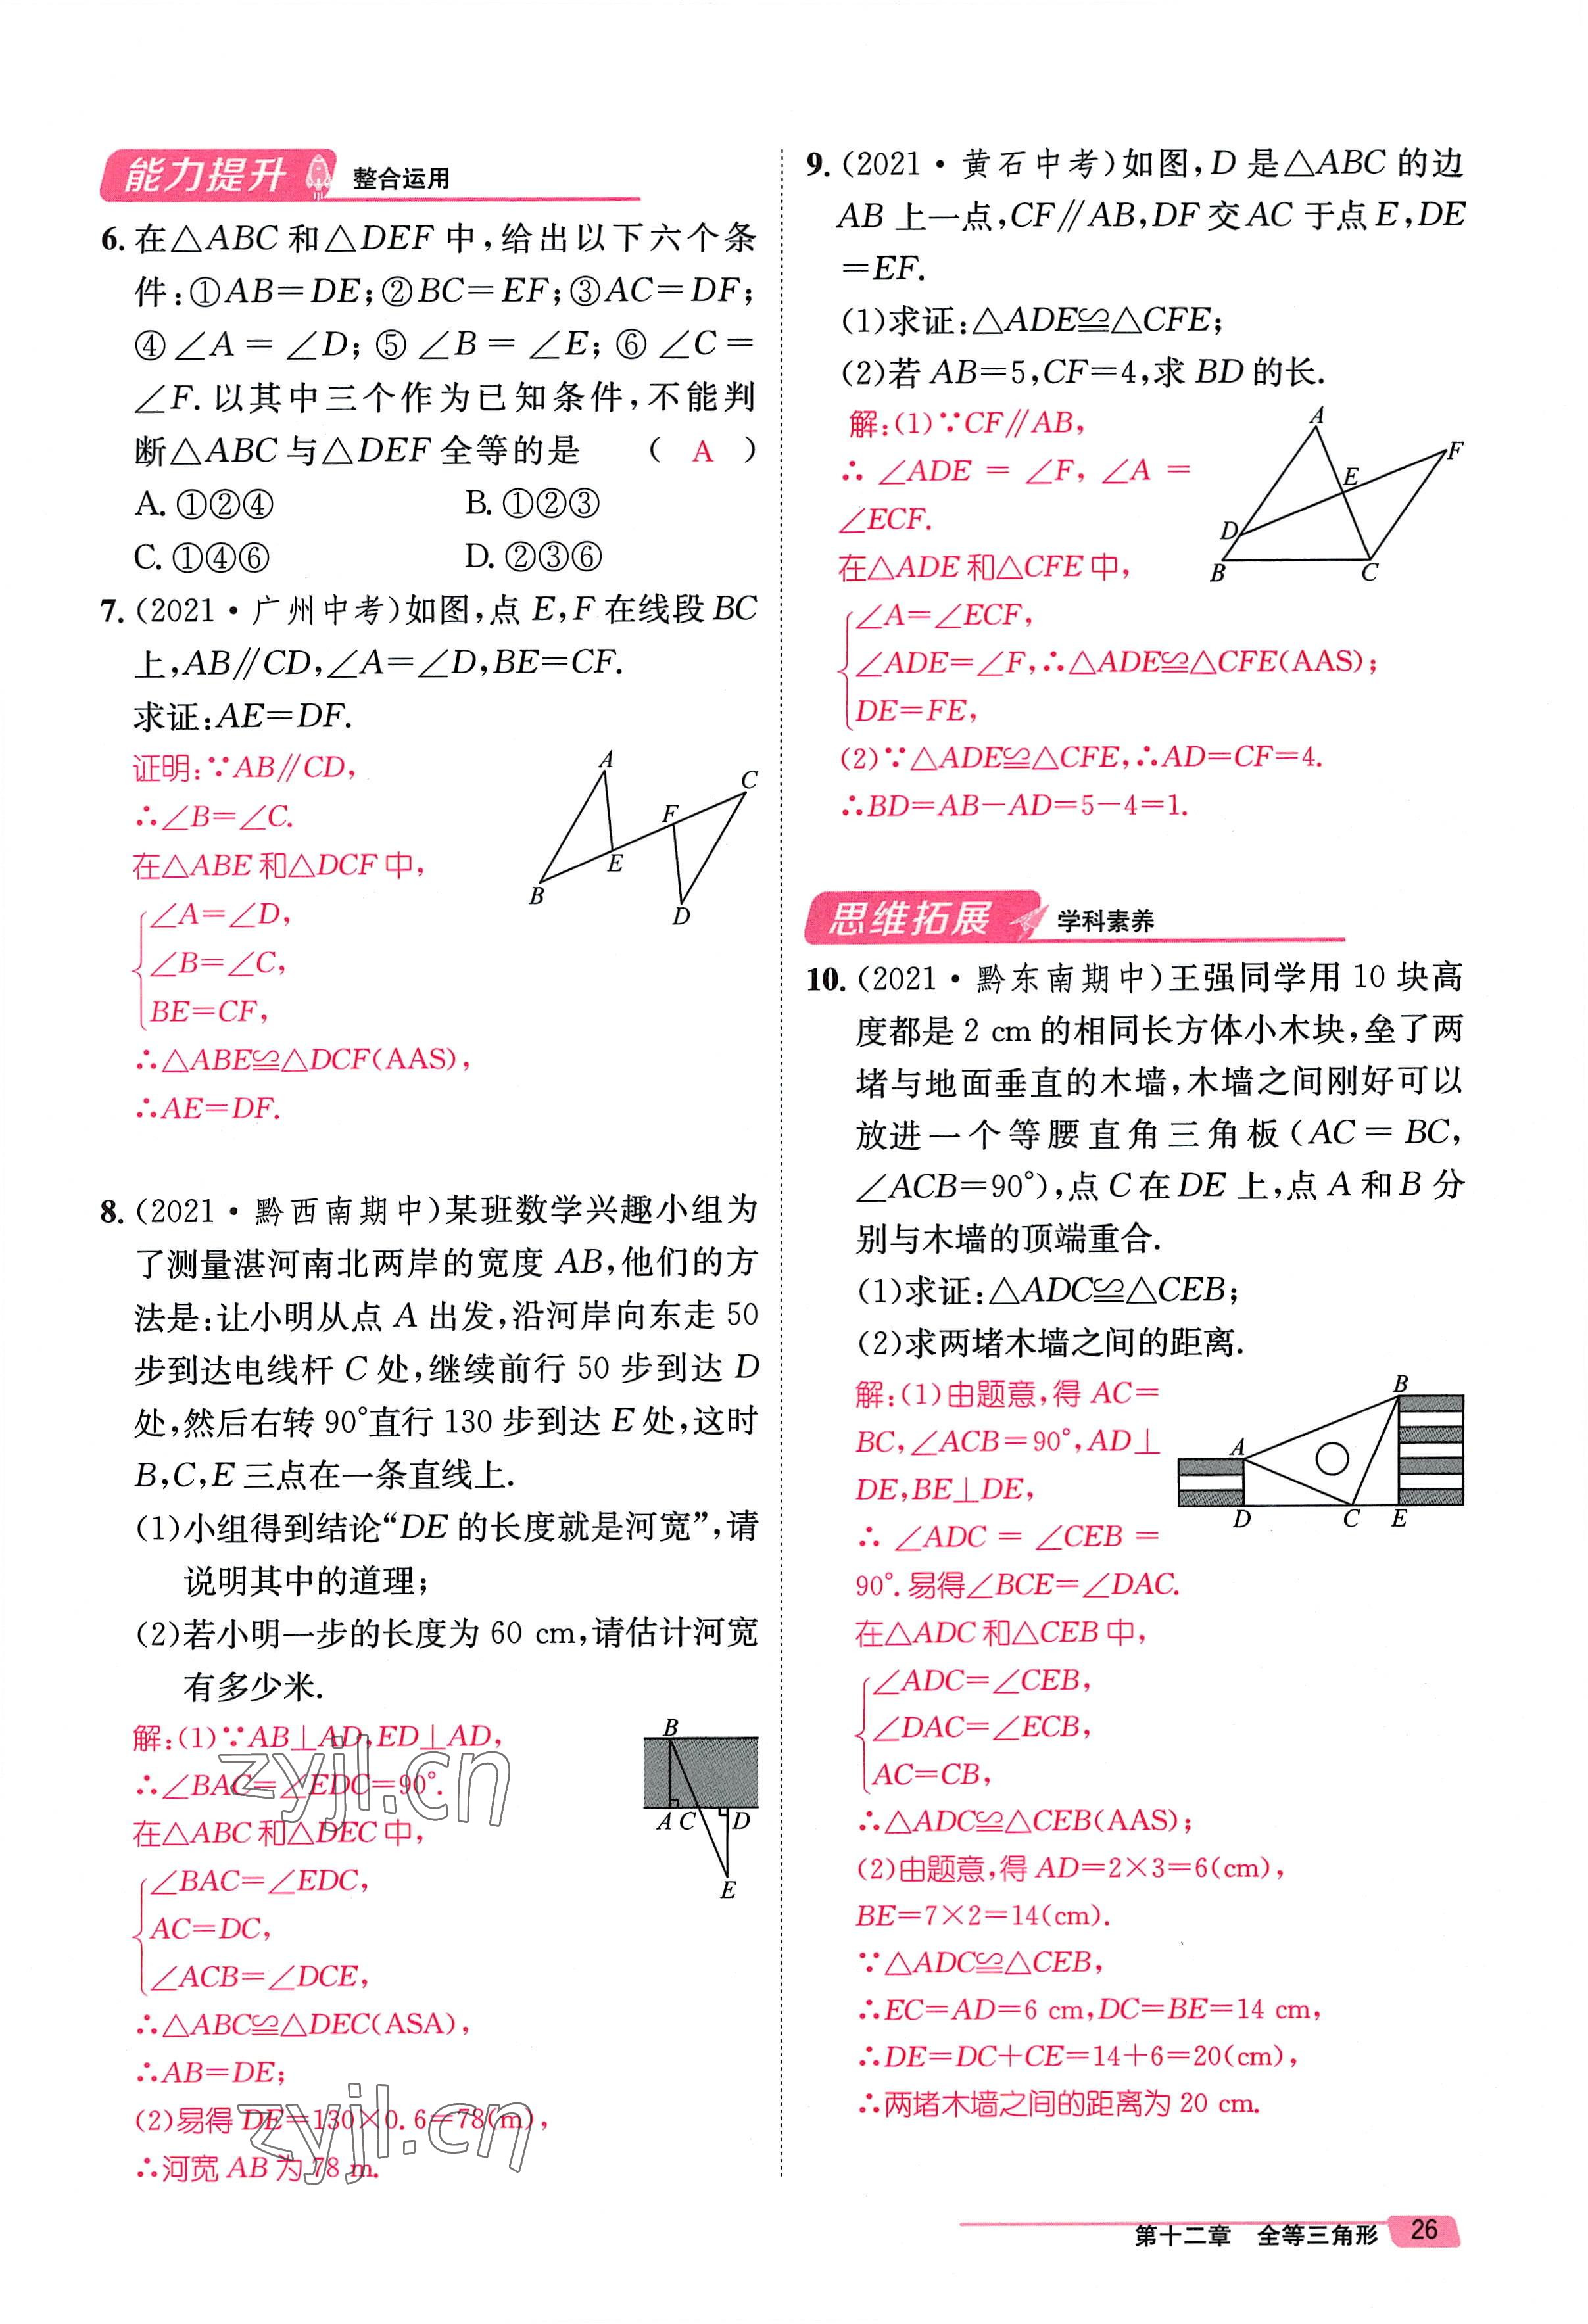 能力提升 整合运用
6. 在△ABC 和△DEF 中,给出以下六个条
件:①AB=DE;②BC=EF;③AC=DF;
④∠A=∠D;⑤∠B=∠E;⑥∠C=
∠F. 以其中三个作为已知条件,不能判
断△ABC 与△DEF 全等的是 ( A )
A. ①②④ B. ①②③
C. ①④⑥ D. ②③⑥
7. (2021·广州中考)如图,点 E,F 在线段 BC
上,AB∥CD,∠A=∠D,BE=CF.
求证:AE=DF.
证明:∵AB∥CD,
∴∠B=∠C.
在△ABE 和△DCF 中,
∠A=∠D,
∠B=∠C,
BE=CF,
∴△ABE≌△DCF(AAS),
∴AE=DF.
A
B
C
D
E
F
8. (2021·黔西南期中)某班数学兴趣小组为
了测量湛河南北两岸的宽度 AB,他们的方
法是:让小明从点 A 出发,沿河岸向东走 50
步到达电线杆 C 处,继续前行 50 步到达 D
处,然后右转 90°直行 130 步到达 E 处,这时
B,C,E 三点在一条直线上.
(1)小组得到结论“DE 的长度就是河宽”,请
说明其中的道理;
(2)若小明一步的长度为 60 cm,请估计河宽
有多少米.
解:(1)∵AB⊥AD,ED⊥AD,
∴∠BAC=∠EDC=90°.
在△ABC 和△DEC 中,
∠BAC=∠EDC,
AC=DC,
∠ACB=∠DCE,
∴△ABC≌△DEC(ASA),
∴AB=DE;
(2)易得 DE=130×0.6=78(m),
∴河宽 AB 为 78 m.
B
A C D
E
zyjl.cn
zyjl.cn
9. (2021·黄石中考)如图,D 是△ABC 的边
AB 上一点,CF∥AB,DF 交 AC 于点 E,DE
=EF.
(1)求证:△ADE≌△CFE;
(2)若 AB=5,CF=4,求 BD 的长.
解:(1)∵CF∥AB,
∴∠ADE=∠F,∠A=
∠ECF.
在△ADE 和△CFE 中,
∠A=∠ECF,
∠ADE=∠F,∴△ADE≌△CFE(AAS);
DE=FE,
(2)∵△ADE≌△CFE,∴AD=CF=4.
∴BD=AB-AD=5-4=1.
A
F
E
D
B
C
思维拓展 学科素养
10. (2021·黔东南期中)王强同学用 10 块高
度都是 2 cm 的相同长方体小木块,垒了两
堵与地面垂直的木墙,木墙之间刚好可以
放进一个等腰直角三角板(AC=BC,
∠ACB=90°),点 C 在 DE 上,点 A 和 B 分
别与木墙的顶端重合.
(1)求证:△ADC≌△CEB;
(2)求两堵木墙之间的距离.
解:(1)由题意,得 AC=
BC,∠ACB=90°,AD⊥
DE,BE⊥DE,
∴∠ADC=∠CEB=
90°. 易得∠BCE=∠DAC.
在△ADC 和△CEB 中,
∠ADC=∠CEB,
∠DAC=∠ECB,
AC=CB,
∴△ADC≌△CEB(AAS);
(2)由题意,得 AD=2×3=6(cm),
BE=7×2=14(cm).
∵△ADC≌△CEB,
∴EC=AD=6 cm,DC=BE=14 cm,
∴DE=DC+CE=14+6=20(cm),
∴两堵木墙之间的距离为 20 cm.
B
A
D C E
第十二章 全等三角形 26